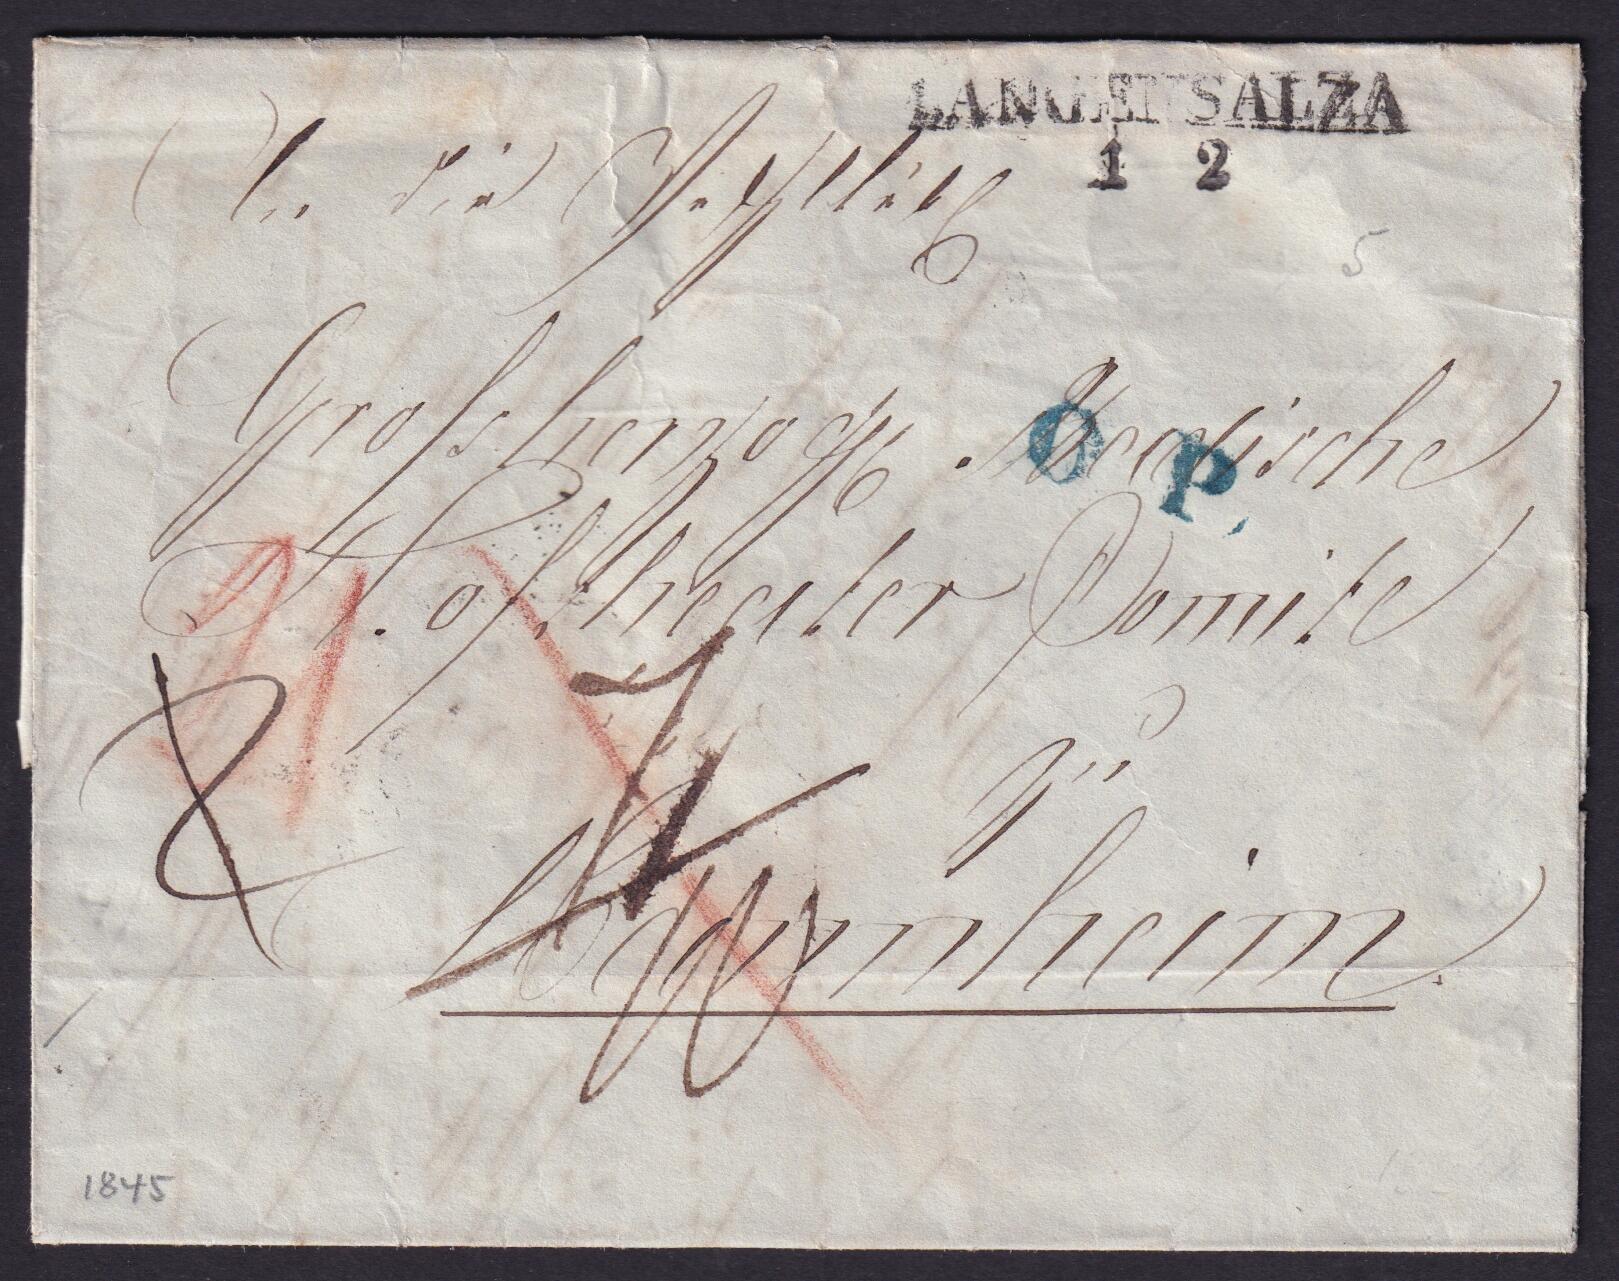 LANGENSALZA
1 2
An die
5
Grossherzogl. Badische
O P.
Hoftheater Comite
21
zu
Mannheim.
1845